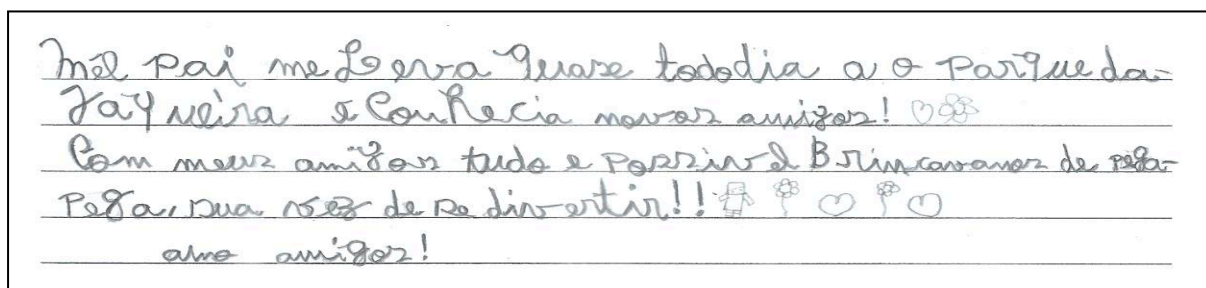 mel Pai me Leva quase tododia a o Parque da-
Jaqueira e Conhecia novos amigos!
Com meus amigos tudo e possivel Brincavamos de pega-
Pega, sua vez de se divertir!!
amo amigos!